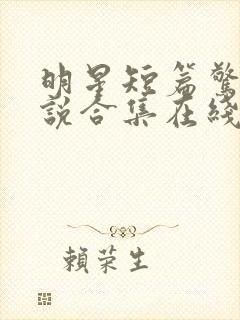 明星短篇驚
說合集在綫
賴荣生